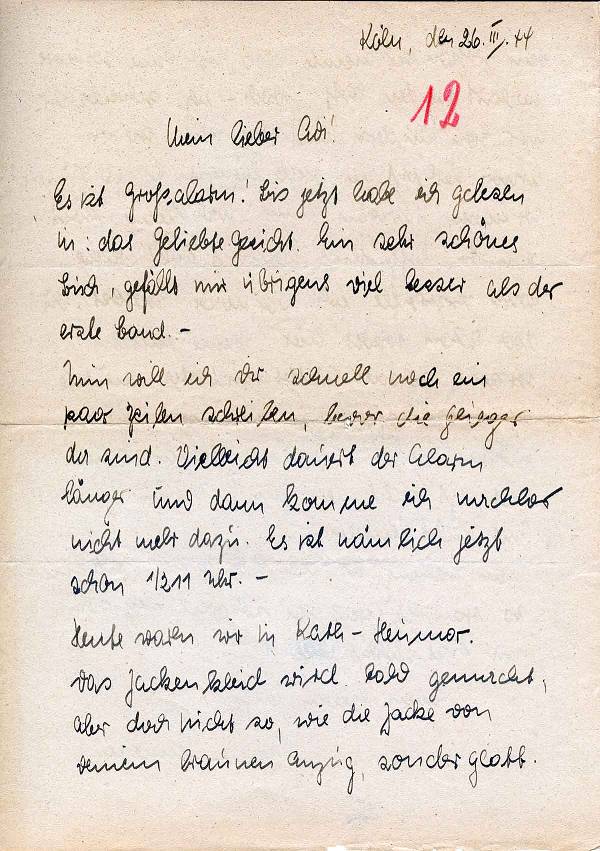 Köln, den 26. III. 44
12
Mein lieber Adi!
Es ist Großalarm! Bis jetzt habe ich gelesen
in: das Geliebte Gesicht. Ein sehr schönes
Buch, gefällt mir übrigens viel besser als der
erste Band. -
Nun will ich Dir schnell noch ein
paar Zeilen schreiben, bevor die Flieger
da sind. Vielleicht dauert der Alarm
länger und dann komme ich nachher
nicht mehr dazu. Es ist nämlich jetzt
schon 1/2 11 Uhr. -
Heute waren wir in
Das Jackenkleid wird bald gemacht,
aber doch nicht so, wie die Jacke von
deinem braunen Anzug, sonder glatt.